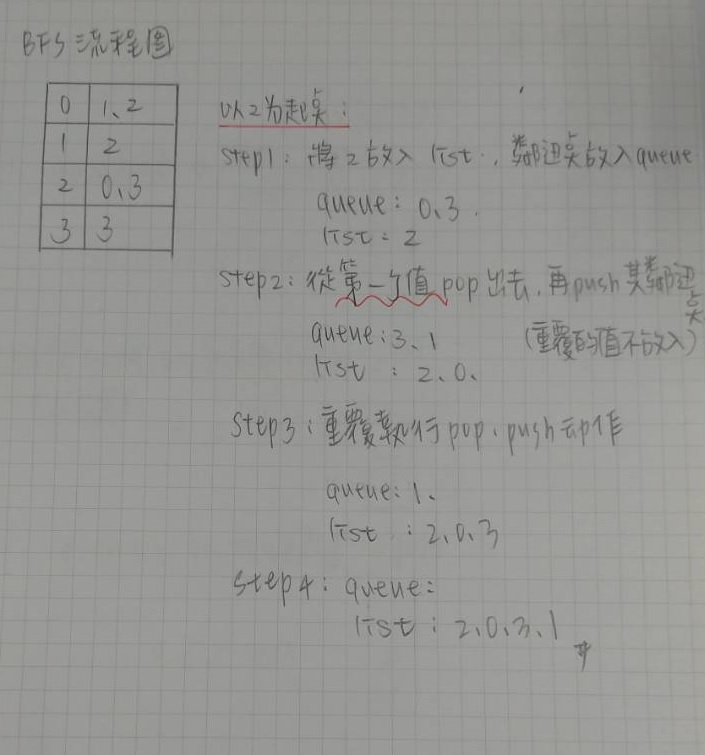 BFS 流程圖
0 1、2
1 2
2 0、3
3 3
以2為起點:
step1: 將2放入 list, 鄰近點放入queue
queue: 0、3.
list: 2
step2: 從第一个值pop出去, 再push其鄰近點
(重覆的值不放入)
queue: 3、1
list : 2、0、
step3: 重覆執行pop、push动作
queue: 1、
list : 2、0、3
step4: queue:
list : 2、0、3、1 #